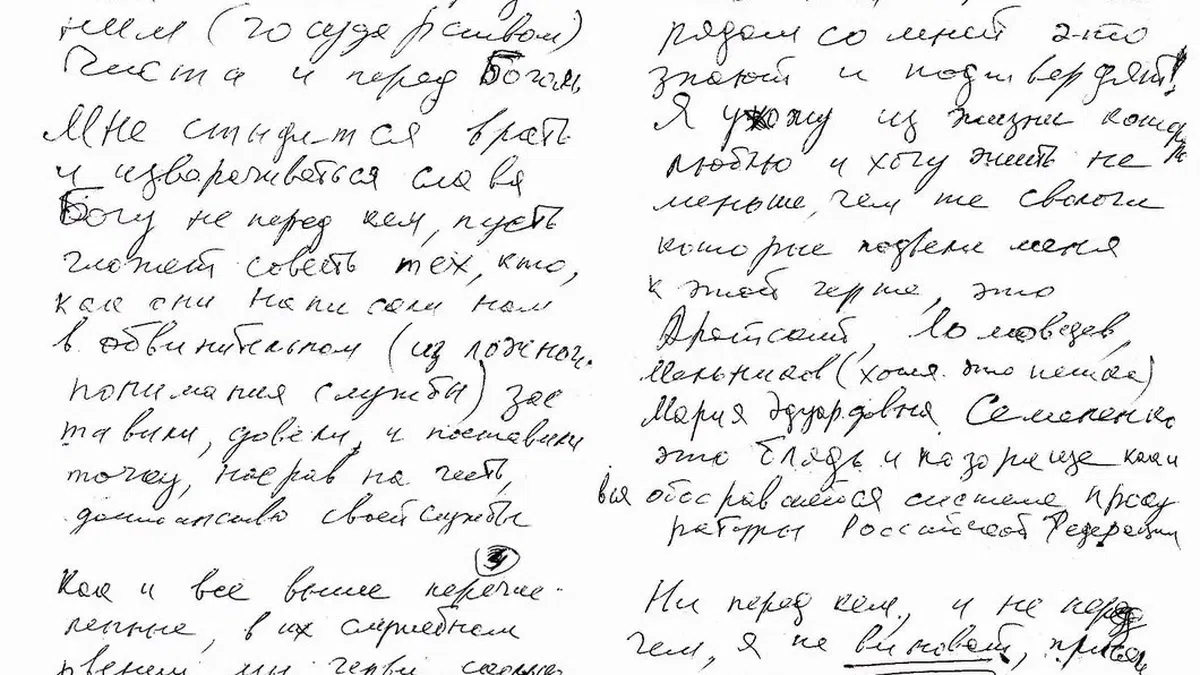 ним (государством)
Чиста и перед Богом
Мне стыдится врать
и изворачиваться слава
Богу не перед кем, пусть
гложет совесть тех, кто,
как они написали нам
в обвинительном (из ложного
понимания службы) зас
тавили, довели, и поставили
точку, насрав на честь,
достоинство своей службы
Как и все выше перечис-
ленные, в их служебном
рвении мы черви
рядом со мной это
знают и подтвердят!
Я ухожу из жизни которую
люблю и хочу жить не
меньше, чем те сволочи
которые подвели меня
к этой черте, это
Ломоведев,
Мельников (хотя это пешка)
Мария Эдуардовна Семененко
это блядь и позорище как и
вся обосравшейся системе проку
ратуры Российской Федерации
Ни перед кем, и не перед
чем, я не виноват,